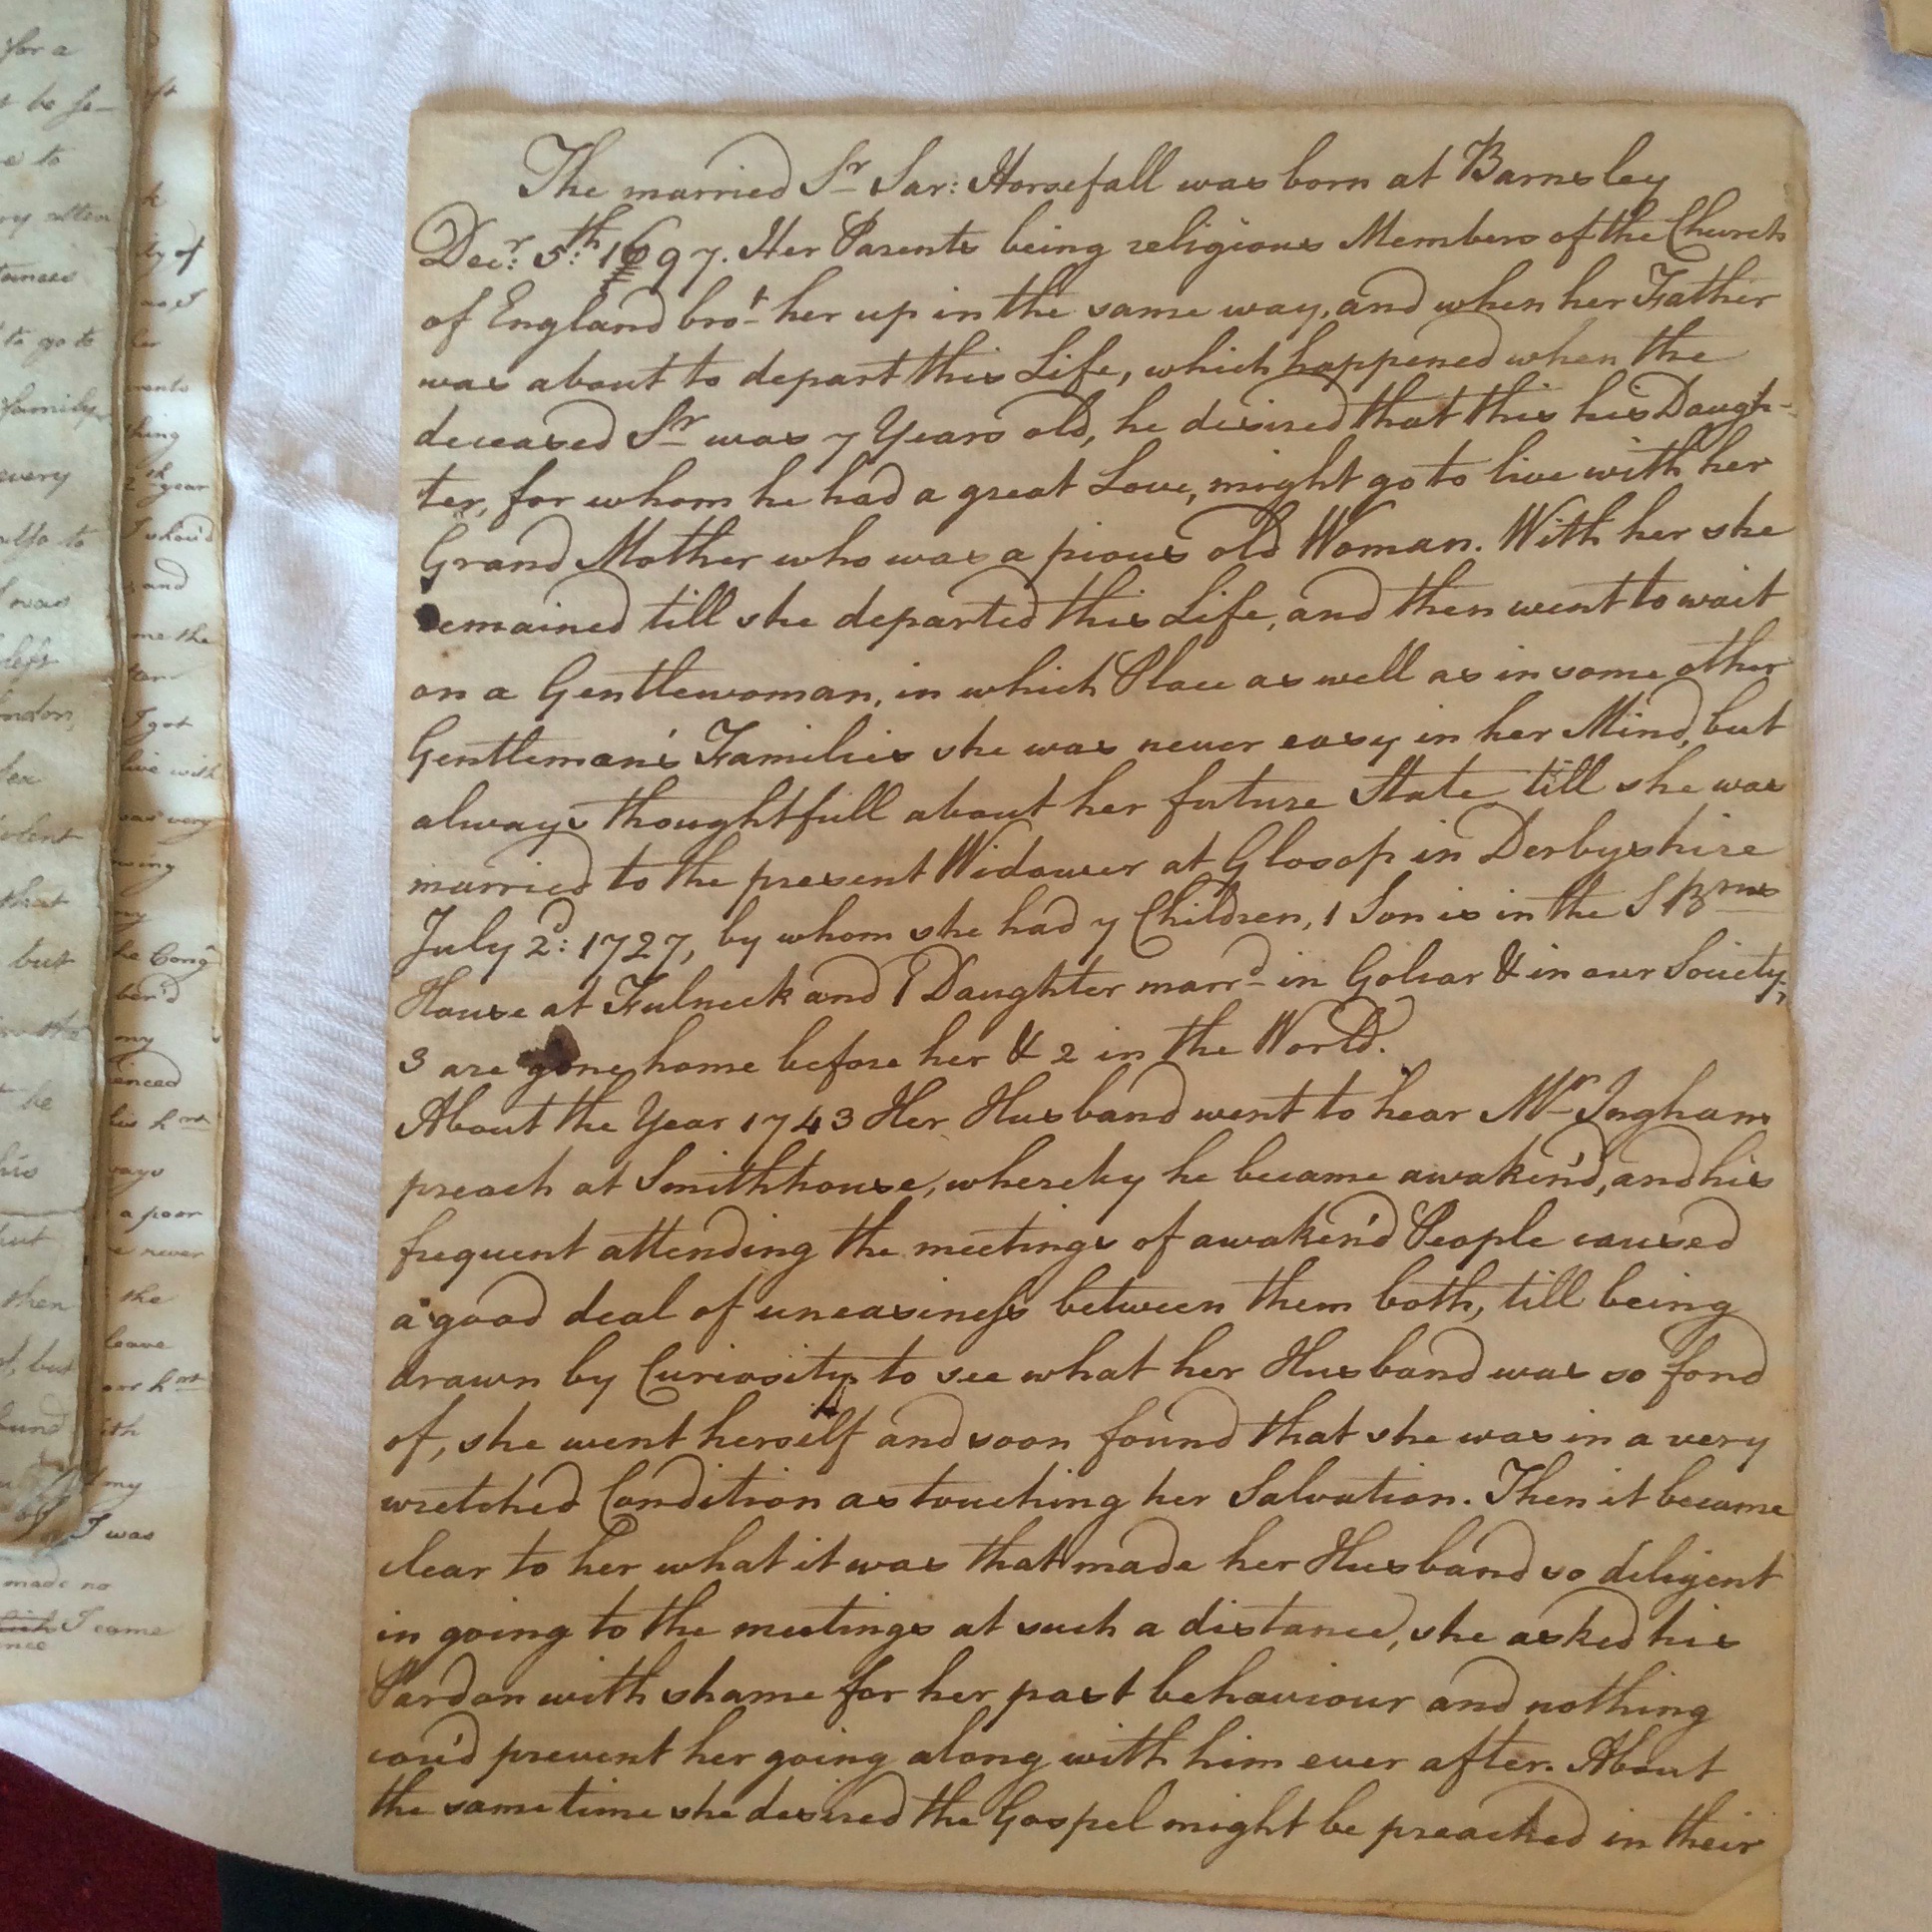 for a
t be se-
e to
ry atten
tances
to go to
family
every
also to
I was
left
ondon,
that
but
t be
his
but
then
t, but
ound
made no
I came
k
ity of
as I
her
ments
thing
2th year
I shou'd
and
me the
I got
live with
was very
my
he Cong
ber'd
my
enced
his hrt
ways
a poor
e never
the
leave
oor hrt
ith
my
I was
The married Sr Sar: Horsefall was born at Barnsley
Decr: 5th: 1697. Her Parents being religious Members of the Church
of England brot her up in the same way, and when her Father
was about to depart this Life, which happened when the
deceased Sr was 7 Years old, he desired that this his Daugh-
ter, for whom he had a great Love, might go to live with her
Grand Mother who was a pious old Woman. With her she
remained till she departed this Life, and then went to wait
on a Gentlewoman, in which Place as well as in some other
Gentleman's Families she was never easy in her Mind, but
always thoughtfull about her future State till she was
married to the present Widower at Glosop in Derbyshire
July 2d: 1727, by whom she had 7 Children, 1 Son is in the S Brns
House at Fulneck and 1 Daughter marrd in Golcar & in our Society,
3 are gone home before her & 2 in the World.
About the Year 1743 Her Husband went to hear Mr Ingham
preach at Smithhouse, whereby he became awaken'd, and his
frequent attending the meetings of awaken'd People caused
a good deal of uneasiness between them both, till being
drawn by Curiosity to see what her Husband was so fond
of, she went herself and soon found that she was in a very
wretched Condition as touching her Salvation. Then it became
clear to her what it was that made her Husband so diligent
in going to the meetings at such a distance, she asked his
Pardon with shame for her past behaviour and nothing
cou'd prevent her going along with him ever after. About
the same time she desired the Gospel might be preached in their